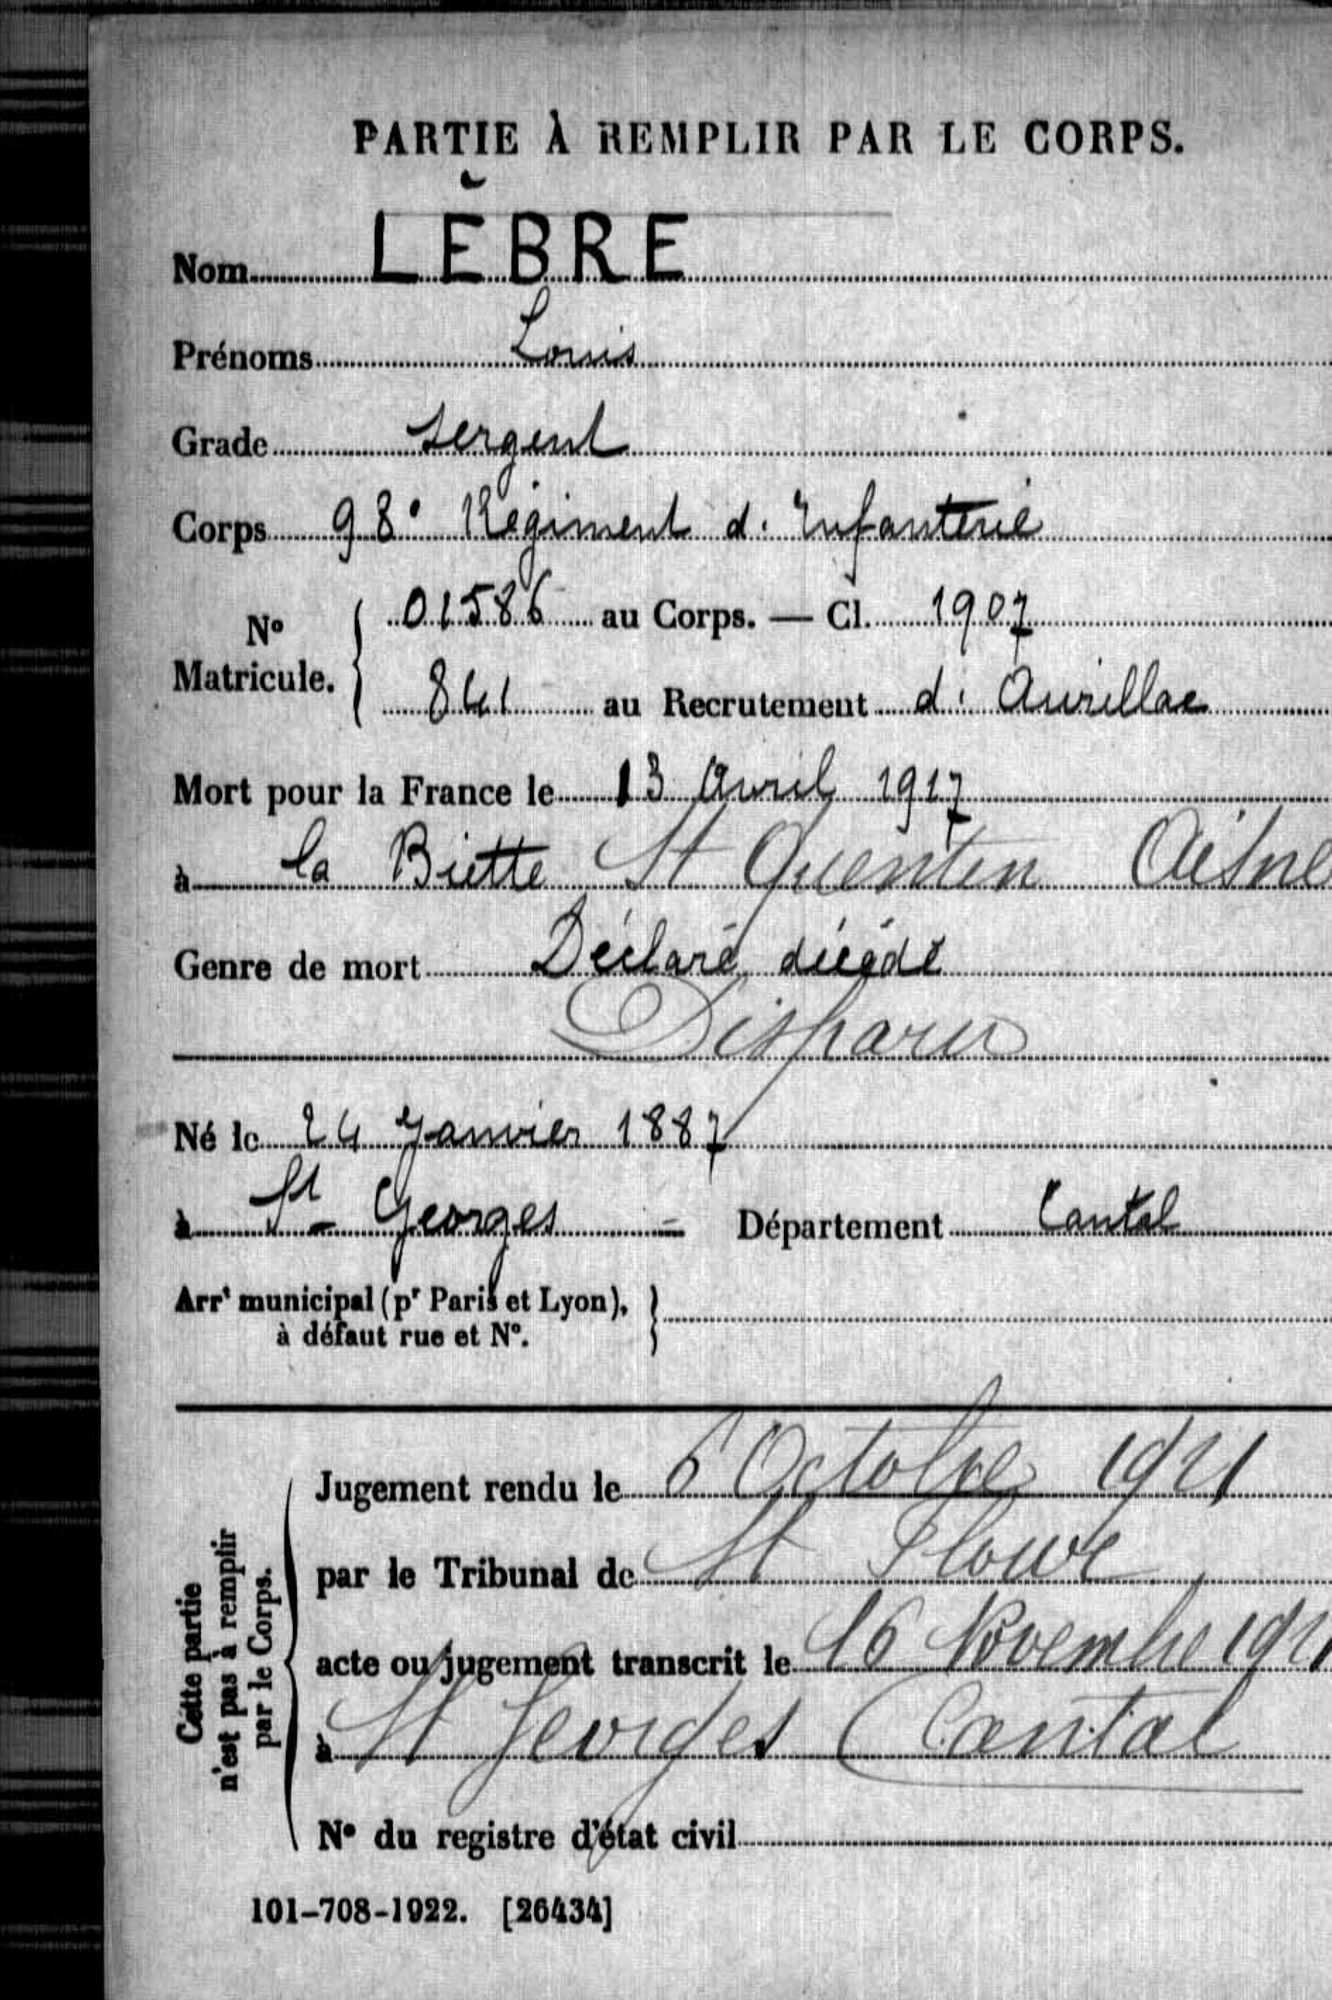 PARTIE À REMPLIR PAR LE CORPS.
Nom LÈBRE
Prénoms Louis
Grade Sergent
Corps 98e Régiment d'Infanterie
No Matricule. 01586 au Corps. — Cl. 1907
841 au Recrutement d'Aurillac
Mort pour la France le 13 Avril 1917
à la Biette St Quentin Aisne
Genre de mort Déclaré décédé
Disparu
Né le 24 Janvier 1887
à St Georges - Département Cantal
Arrt municipal (pr Paris et Lyon), à défaut rue et No.
Cette partie n'est pas à remplir par le Corps.
Jugement rendu le 6 Octobre 1921
par le Tribunal de St Flour
acte ou jugement transcrit le 16 Novembre 1921
à St Georges (Cantal
No du registre d'état civil
101-708-1922. [26434]